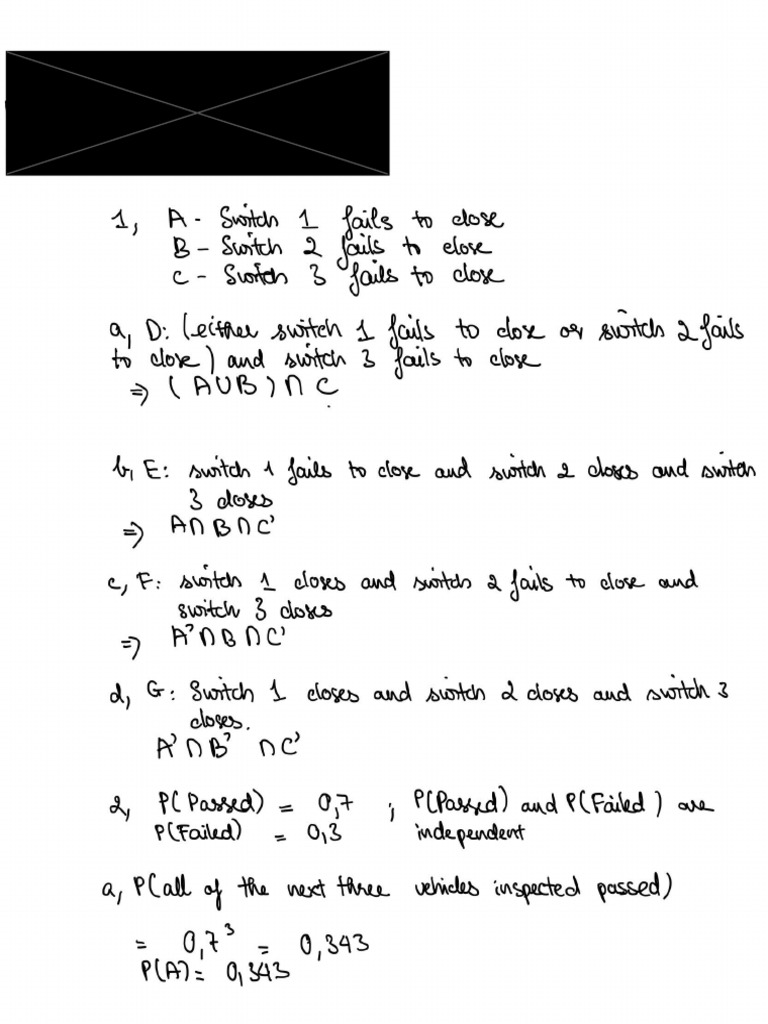 1, A - Switch 1 fails to close
B - Switch 2 fails to close
C - Switch 3 fails to close
a, D: (either switch 1 fails to close or switch 2 fails
to close) and switch 3 fails to close
⇒ (A∪B)∩C
b, E: switch 1 fails to close and switch 2 closes and switch
3 closes
⇒ A∩B∩C'
c, F: switch 1 closes and switch 2 fails to close and
switch 3 closes
⇒ A'∩B∩C'
d, G: Switch 1 closes and switch 2 closes and switch 3
closes.
A'∩B'∩C'
2, P(Passed) = 0,7 ; P(Passed) and P(Failed) are
P(Failed) = 0,3 independent
a, P(all of the next three vehicles inspected passed)
= 0,7³ = 0,343
P(A) = 0,343